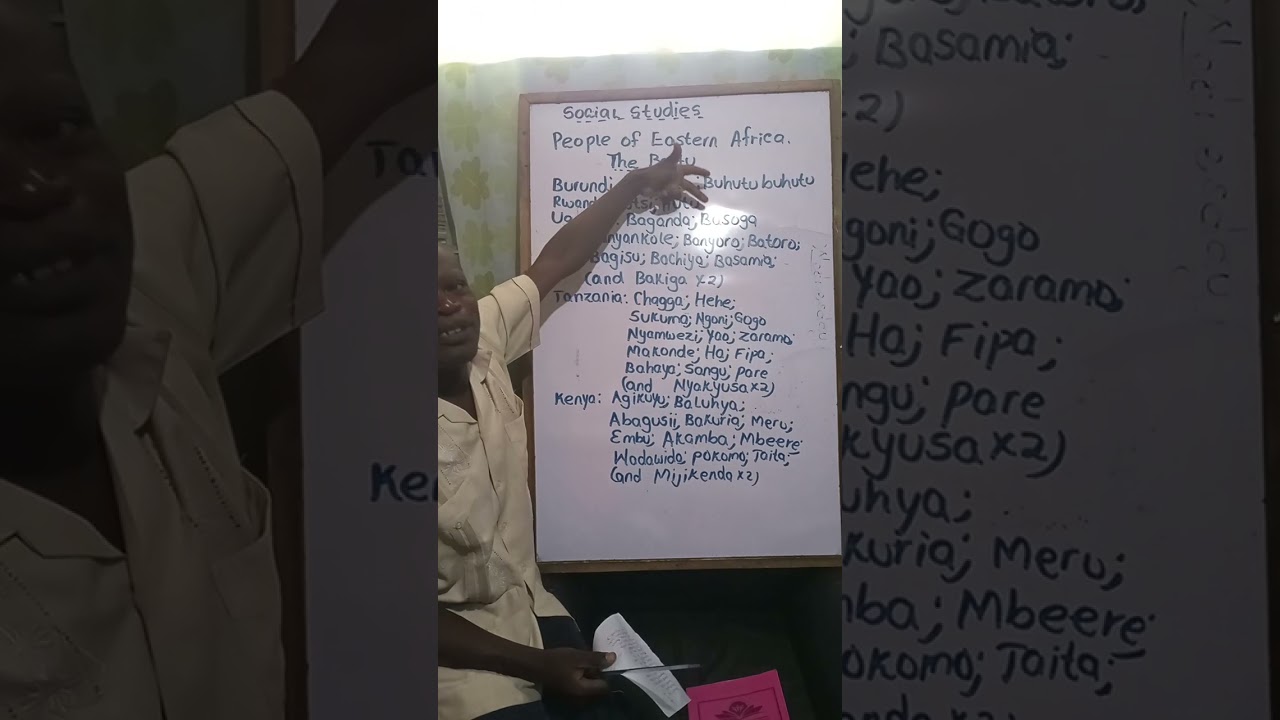 Social Studies
People of Eastern Africa.
The
Burundi ; Buhutu buhutu
Hutu
Baganda; Busoga
Banyoro; Batoro;
Bagisu; Bachiya; Basamia;
(and Bakiga x2)
Tanzania: Chagga; Hehe;
Sukuma; Ngoni; Gogo
Nyamwezi; Yao; Zaramo;
Makonde; Ha; Fipa;
Bahaya; Sangu; Pare
(and Nyakyusa x2)
Kenya: Agikuyu; Baluhya;
Abagusii; Bakuria; Meru;
Embu; Akamba; Mbeere;
Wadawida; Pokomo; Taita;
(and Mijikenda x2)